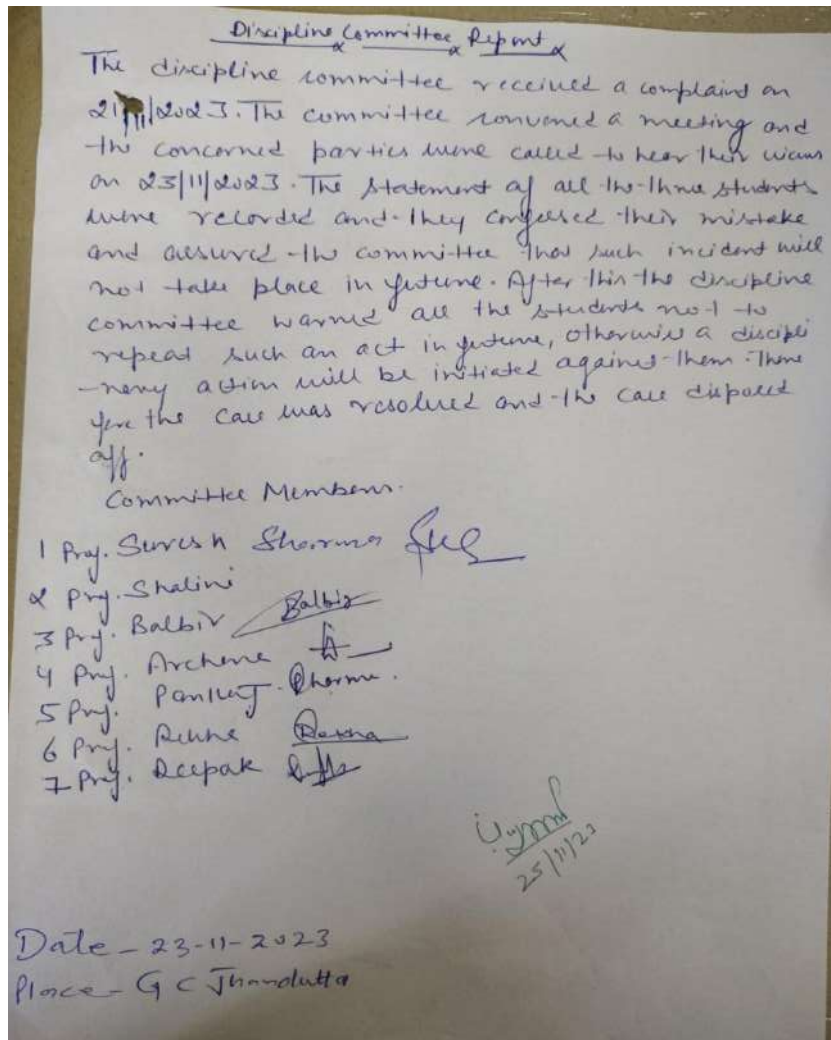 Discipline Committee Report
The discipline committee received a complaint on
21/11/2023. The committee convened a meeting and
the concerned parties were called to hear their views
on 23/11/2023. The statement of all the three students
were recorded and they confessed their mistake
and assured the committee that such incident will
not take place in future. After this the discipline
committee warned all the students not to
repeat such an act in future, otherwise a discipli
-nery action will be initiated against them. There
fore the case was resolved and the case disposed
off.
Committee Members.
1 Prof. Suresh Sharma
2 Prof. Shalini
3 Prof. Balbir Balbir
4 Prof. Archana
5 Prof. Pankaj Sharma.
6 Prof. Rekha Rekha
7 Prof. Deepak
25/11/23
Date - 23-11-2023
Place - G C Jhandutta